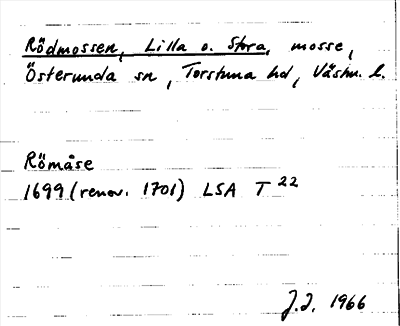 Rödmossen, Lilla o. Stora, mosse,
Österunda sn, Torstuna hd, Västm. l.
Römåse
1699 (renov. 1701) LSA T 22
J.I. 1966